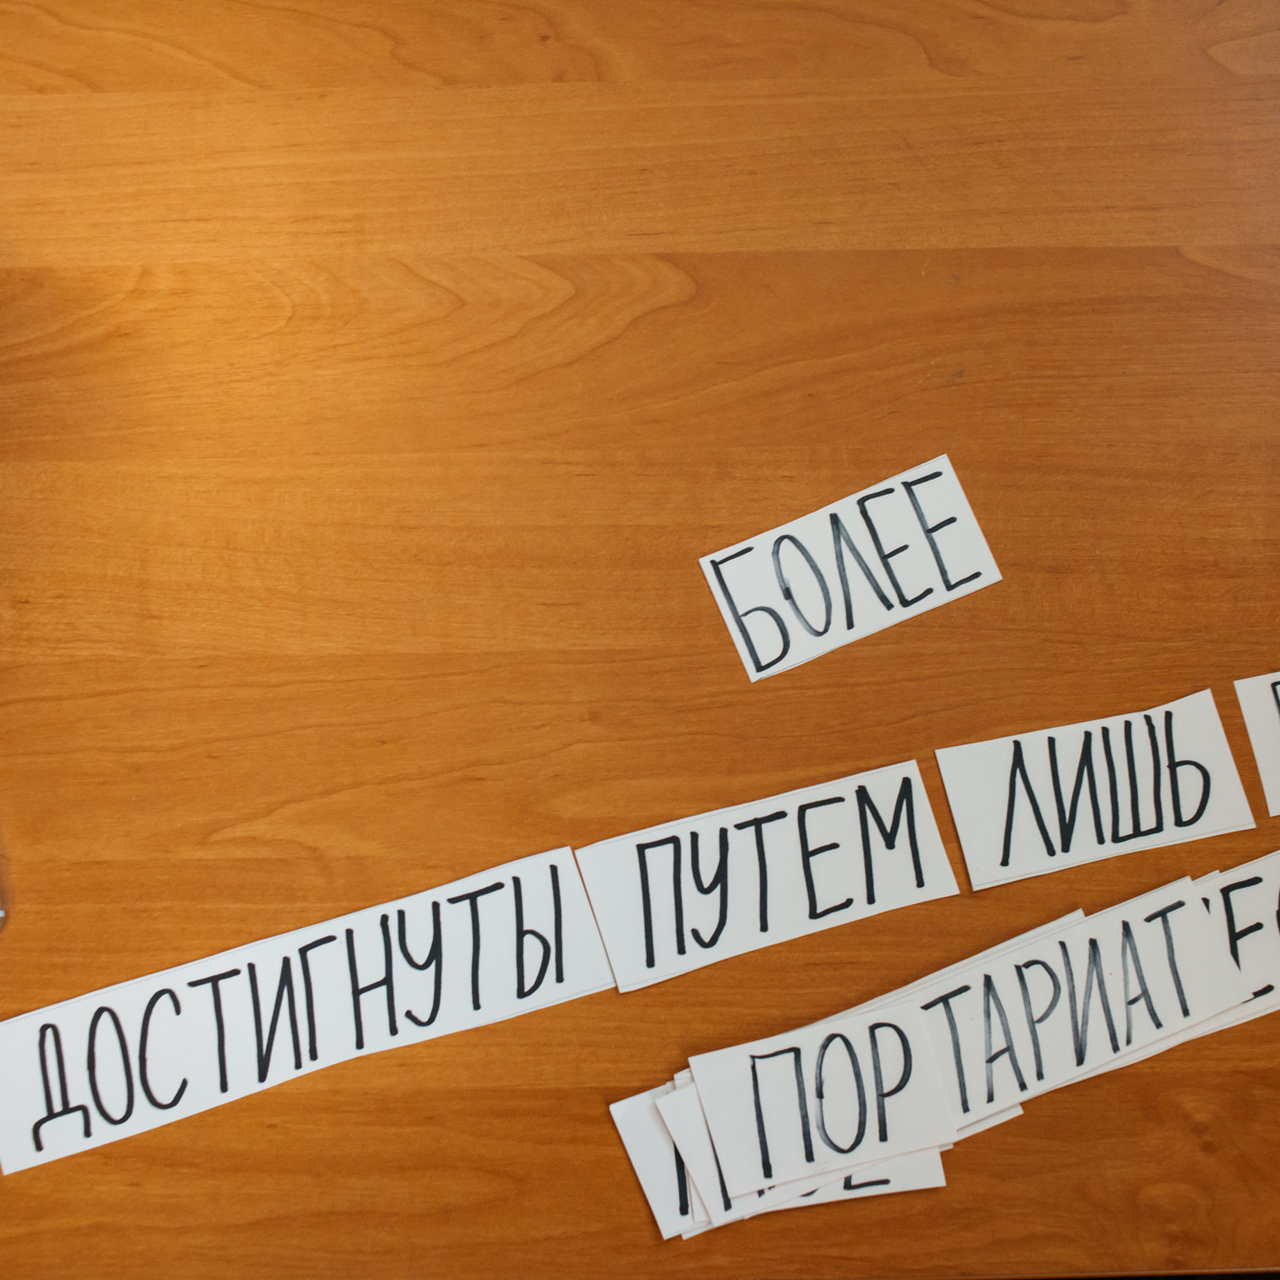 БОЛЕЕ
ДОСТИГНУТЫ ПУТЕМ ЛИШЬ
ПОР ТАРИАТ